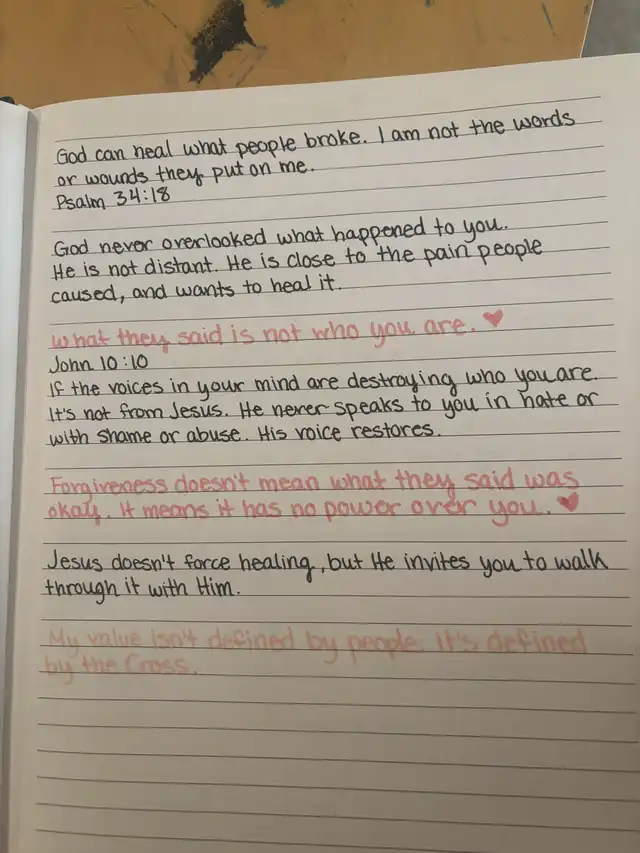 God can heal what people broke. I am not the words
or wounds they put on me.
Psalm 34:18
God never overlooked what happened to you.
He is not distant. He is close to the pain people
caused, and wants to heal it.
What they said is not who you are. ♥
John 10:10
If the voices in your mind are destroying who you are.
It's not from Jesus. He never speaks to you in hate or
with shame or abuse. His voice restores.
Forgiveness doesn't mean what they said was
okay. It means it has no power over you. ♥
Jesus doesn't force healing, but He invites you to walk
through it with Him.
My value isn't defined by people. It's defined
by the Cross.